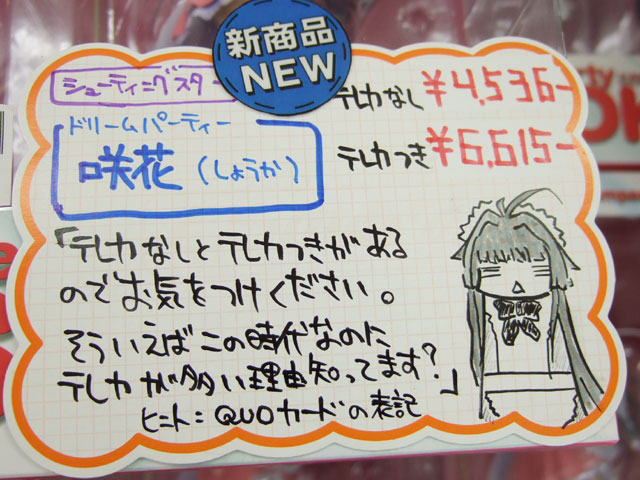 新商品
NEW
シューティングスター
テレカなし ¥4,536-
ドリームパーティー
咲花(しょうか)
テレカつき ¥6,615-
「テレカなしとテレカつきがある
のでお気をつけください。
そういえばこの時代なのに
テレカが多い理由知ってます?」
ヒント:QUOカードの表記